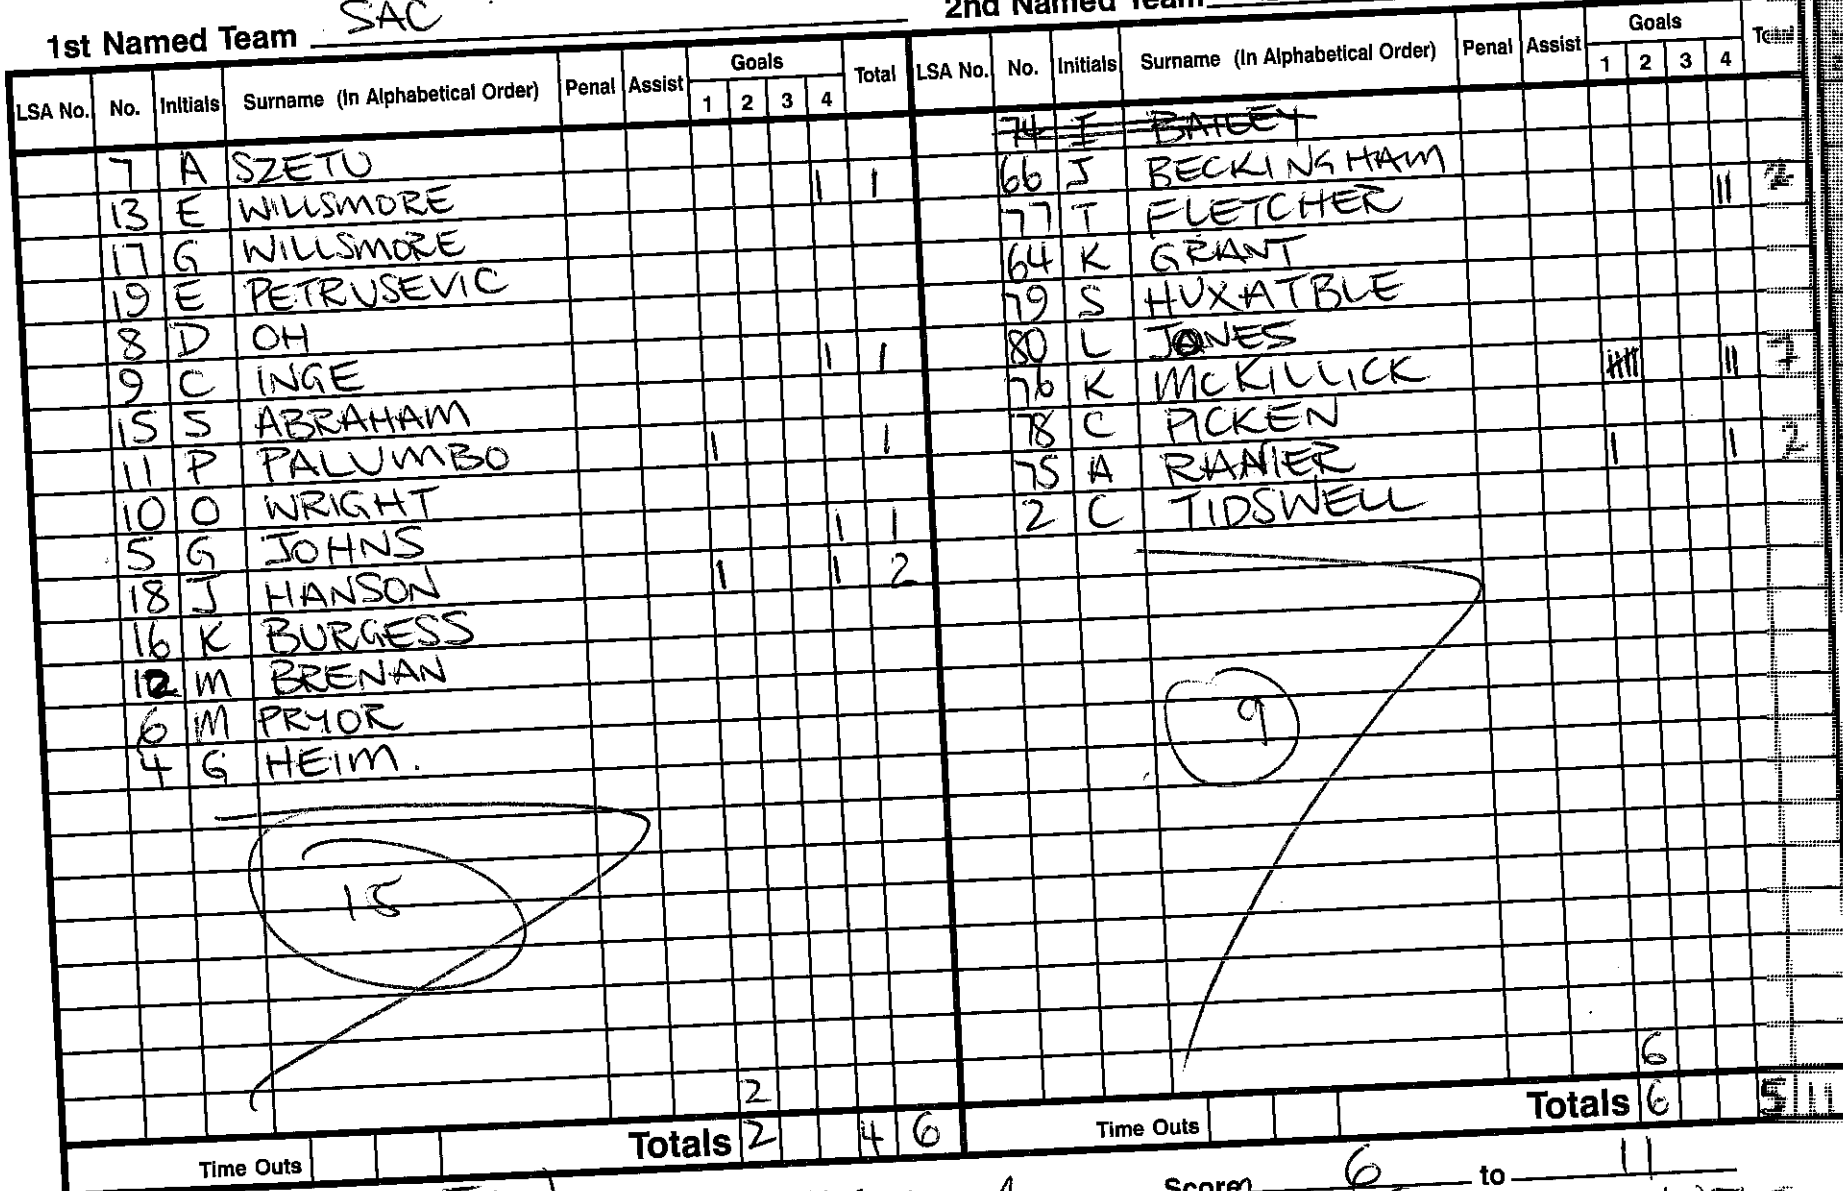 1st Named Team SAC
2nd Named Team
LSA No. No. Initials Surname (In Alphabetical Order) Penal Assist Goals 1 2 3 4 Total
7 A SZETU
13 E WILLSMORE 1 1
17 G WILLSMORE
19 E PETRUSEVIC
8 D OH
9 C INGE 1 1
15 S ABRAHAM
11 P PALUMBO 1 1
10 O WRIGHT
5 G JOHNS 1 1
18 J HANSON 1 1 2
16 K BURGESS
12 M BRENAN
6 M PRYOR
4 G HEIM.
15
2
Totals 2 4 6
Time Outs
LSA No. No. Initials Surname (In Alphabetical Order) Penal Assist Goals 1 2 3 4 Total
74 I BAILEY
66 J BECKINGHAM
77 T FLETCHER 11 2
64 K GRANT
79 S HUXATBLE
80 L JONES
76 K MCKILLICK 11 7
78 C PICKEN
75 A RANIER 1 1 2
2 C TIDSWELL
9
6
Totals 6 5 11
Time Outs
Score 6 to 11